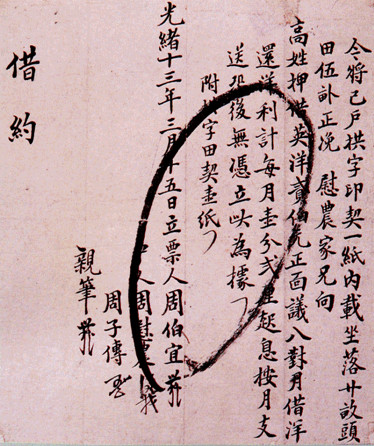 今將己戶拱字印契一紙內載坐落廿畝頭
田伍正浼 慰農家兄向
高姓押借英洋貳伯元正面議八對月借洋
還洋利計每月壹分弍厘起息按月支
送恐後無憑立此為據
附拱字田契壹紙
光緒十三年三月十五日立票人周伯宜
人周慰農
周子傳
親筆
借約